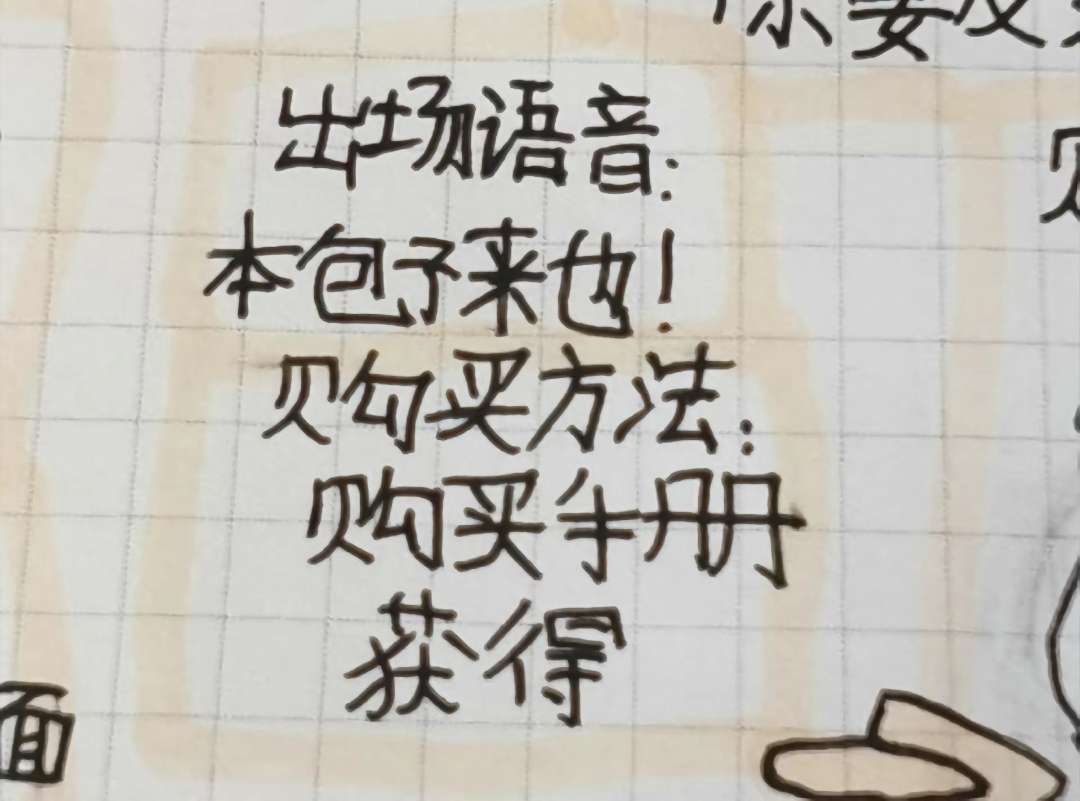 要
出场语音:
本包子来也!
购买方法:
购买手册
获得
面